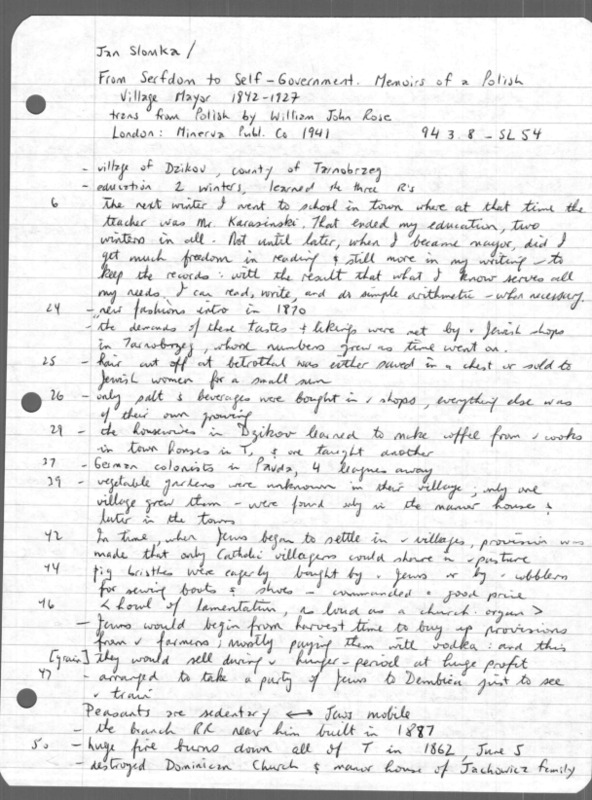 Jan Slomka /
From Serfdom to Self-Government. Memoirs of a Polish
Village Mayor 1842-1927
trans from Polish by William John Rose
London: Minerva Publ. Co 1941 943.8-SL54
- village of Dzikov, county of Tarnobrzeg
- education 2 winters, learned the three R's
6 The next winter I went to school in town where at that time the
teacher was Mr. Karasinski. That ended my education, two
winters in all. Not until later, when I became mayor, did I
get much freedom in reading & still more in my writing - to
keep the records: with the result that what I know serves all
my needs. I can read, write, and do simple arithmetic - when necessary.
24 - new fashions intro in 1870
- the demands of these tastes & likings were met by Jewish shops
in Tarnobrzeg, whose numbers grew as time went on.
25 - hair cut off at betrothal was either saved in a chest or sold to
Jewish women for a small sum
26 - only salt & beverages were bought in shops, everything else was
of their own growing
29 - the housewives in Dzikov learned to make coffee from cooks
in town houses in T, & one taught another
37 - German colonists in Pavda, 4 leagues away
39 - vegetable gardens were unknown in their village; only one
village grew them - were found only in the manor house &
later in the towns
42 In time, when Jews began to settle in villages, provision was
made that only Catholic villagers could share in pasture
44 pig bristles were eagerly bought by Jews or by cobblers
for sewing boots & shoes - commanded a good price
46 <howl of lamentation, as loud as a church organ>
- Jews would begin from harvest time to buy up provisions
from farmers; mostly paying them with vodka: and this
[grain] they would sell during hunger-period at huge profit
47 - arranged to take a party of Jews to Dembica just to see
train
Peasants are sedentary ↔ Jews mobile
- the branch RR near him built in 1887
50 - huge fire burns down all of T in 1862, June 5
- destroyed Dominican Church & manor house of Jachowicz family